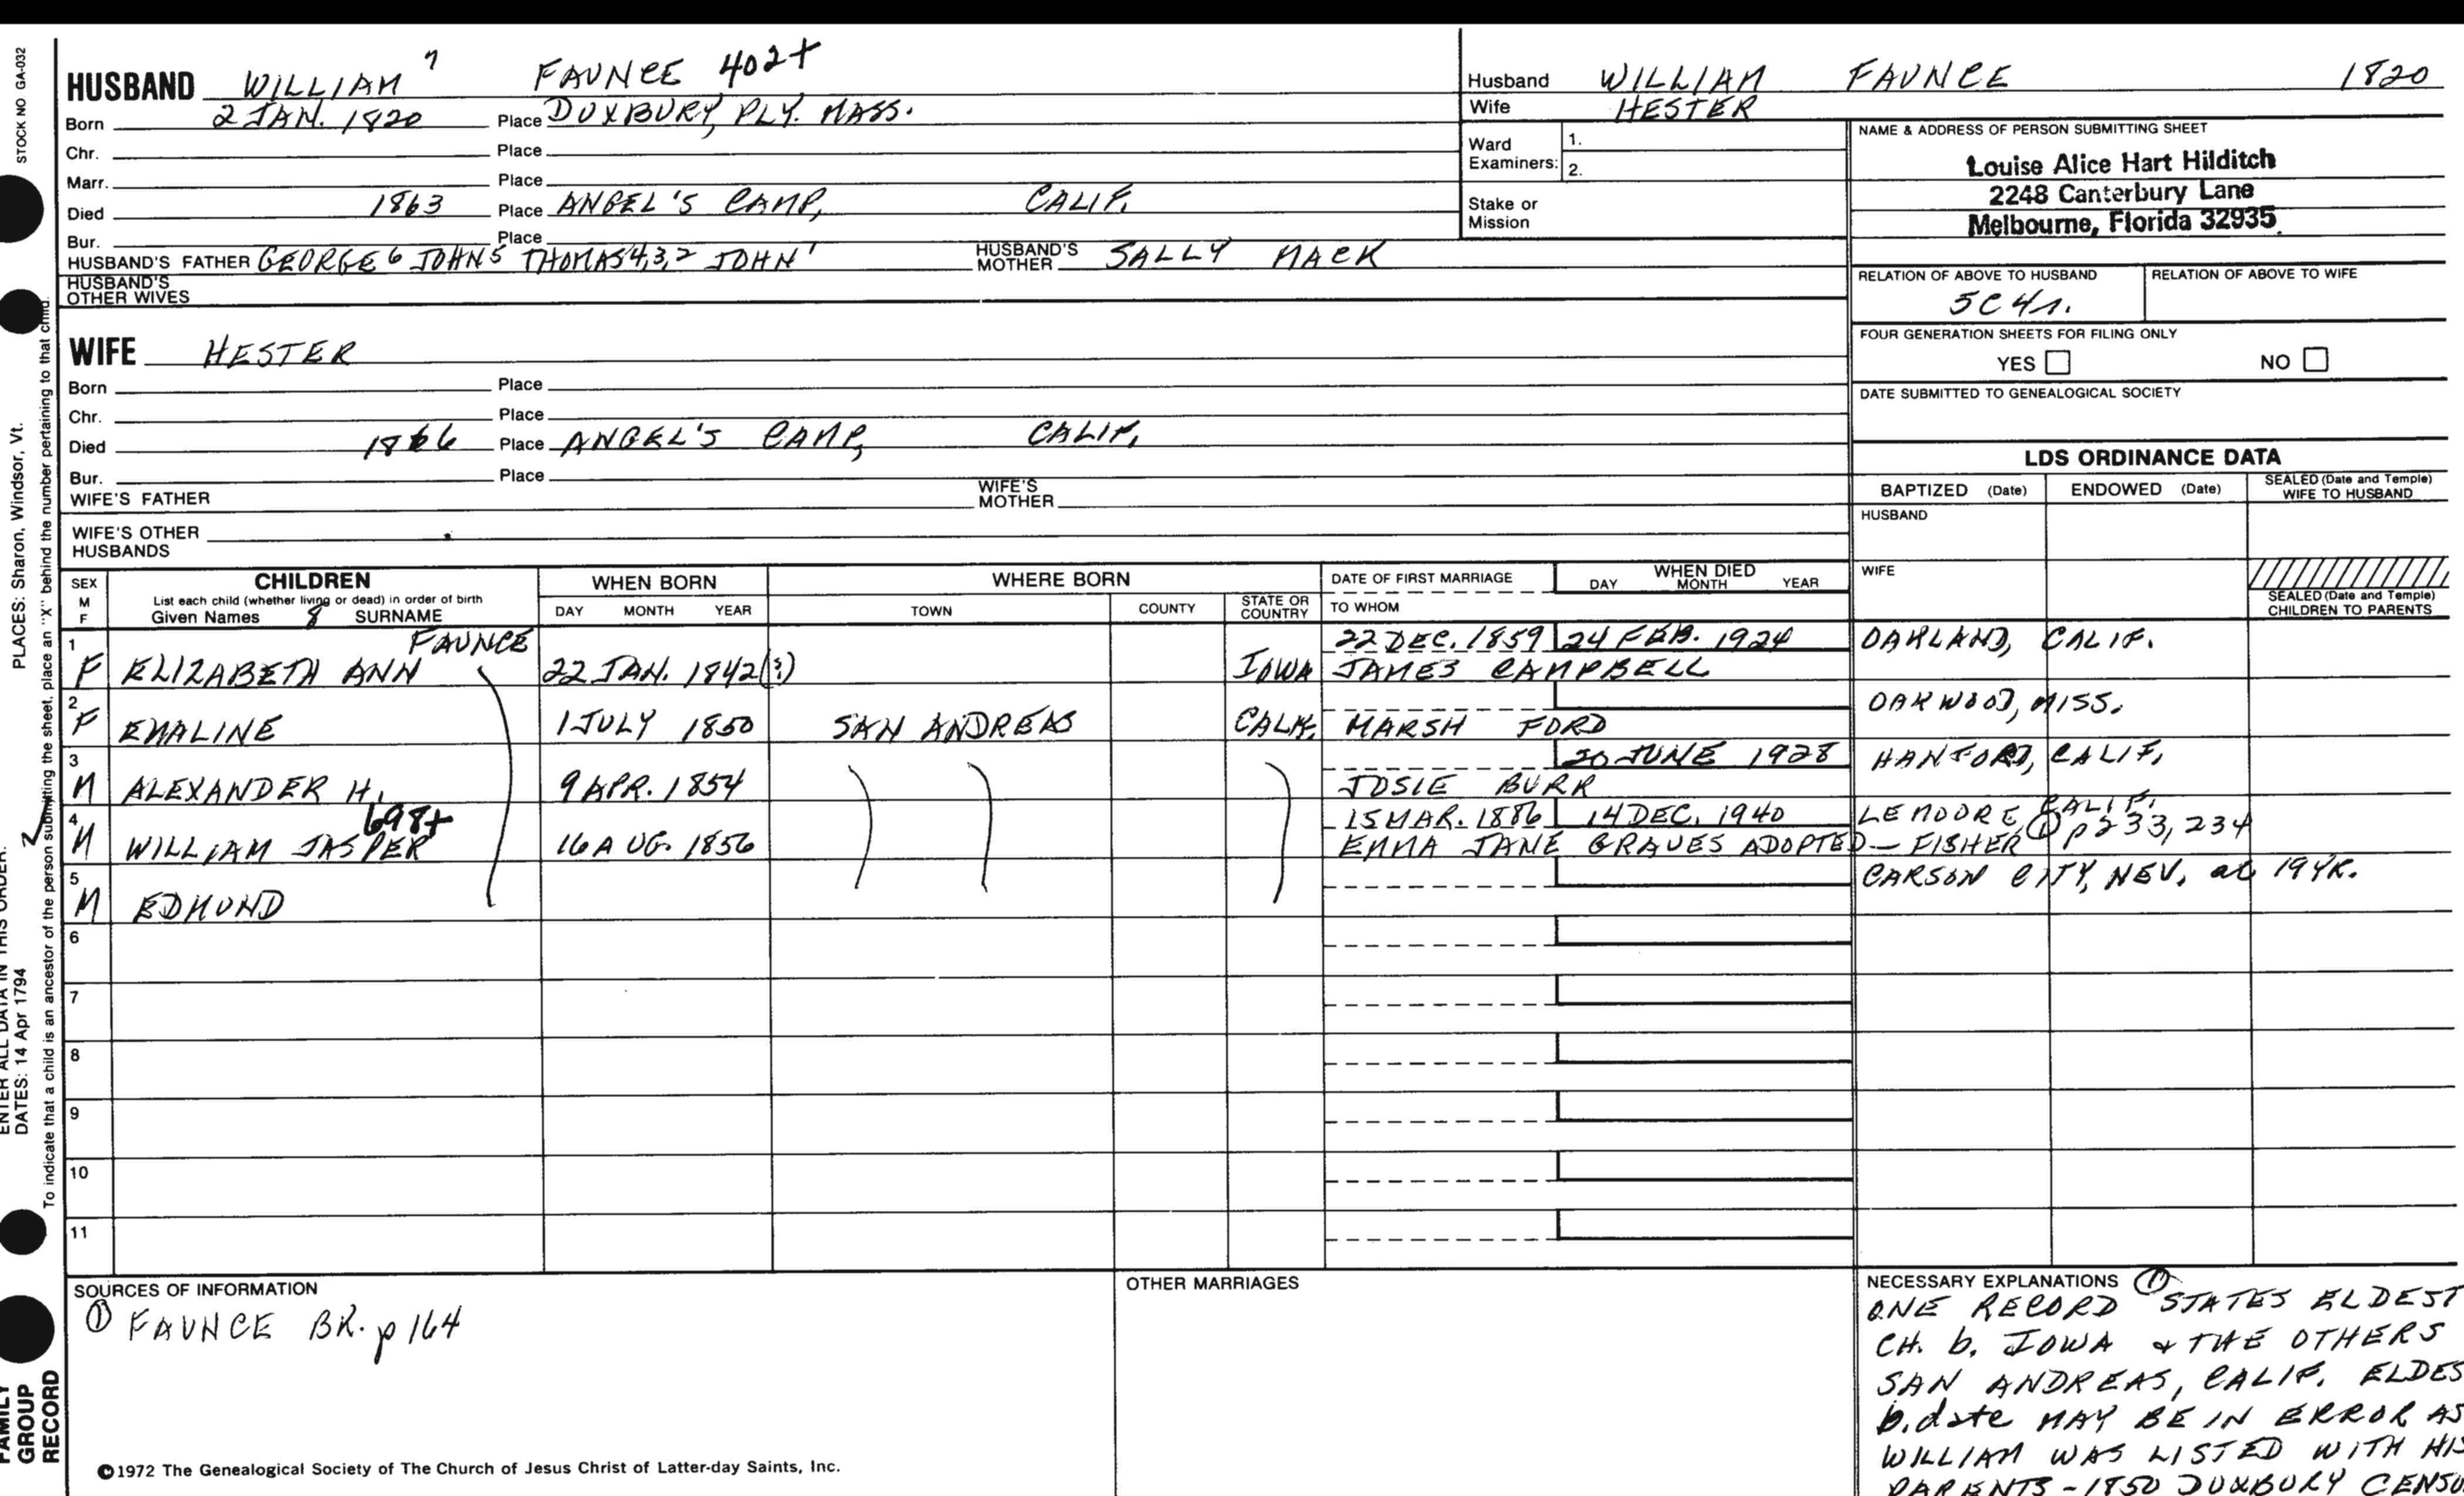 STOCK NO GA-032
HUSBAND WILLIAM 7 FAUNCE 402+
Born 2 JAN. 1820 Place DUXBURY, PLY. MASS.
Chr. Place
Marr. Place
Died 1863 Place ANGEL'S CAMP, CALIF.
Bur. Place
HUSBAND'S FATHER GEORGE 6 JOHN 5 THOMAS 4,3,2 JOHN 1 HUSBAND'S MOTHER SALLY MACK
HUSBAND'S OTHER WIVES
Husband WILLIAM FAUNCE 1820
Wife HESTER
Ward Examiners: 1. 2.
Stake or Mission
NAME & ADDRESS OF PERSON SUBMITTING SHEET
Louise Alice Hart Hilditch
2248 Canterbury Lane
Melbourne, Florida 32935
RELATION OF ABOVE TO HUSBAND RELATION OF ABOVE TO WIFE
5C4r.
FOUR GENERATION SHEETS FOR FILING ONLY
YES NO
DATE SUBMITTED TO GENEALOGICAL SOCIETY
WIFE HESTER
Born Place
Chr. Place
Died 1866 Place ANGEL'S CAMP, CALIF.
Bur. Place
WIFE'S FATHER WIFE'S MOTHER
WIFE'S OTHER HUSBANDS
LDS ORDINANCE DATA
BAPTIZED (Date) ENDOWED (Date) SEALED (Date and Temple) WIFE TO HUSBAND
HUSBAND
WIFE
SEALED (Date and Temple) CHILDREN TO PARENTS
SEX M F CHILDREN WHEN BORN WHERE BORN DATE OF FIRST MARRIAGE WHEN DIED
List each child (whether living or dead) in order of birth DAY MONTH YEAR TOWN COUNTY STATE OR COUNTRY TO WHOM DAY MONTH YEAR
Given Names 8 SURNAME
1 FAUNCE 22 DEC. 1859 24 FEB. 1924 OAKLAND, CALIF.
F ELIZABETH ANN 22 JAN. 1842(?) IOWA JAMES CAMPBELL
2 OAKWOOD, MISS.
F EMALINE 1 JULY 1850 SAN ANDREAS CALIF. MARSH FORD
3 20 JUNE 1928 HANFORD, CALIF.
M ALEXANDER H. 9 APR. 1854 JOSIE BURR
4 698+ 15 MAR. 1886 14 DEC. 1940 LEMOORE CALIF.
M WILLIAM JASPER 16 AUG. 1856 EMMA JANE GRAVES ADOPTED - FISHER ① p 233, 234
5 CARSON CITY, NEV. at 19 YR.
M EDMUND
6
7
8
9
10
11
SOURCES OF INFORMATION
① FAUNCE BK. p 164
OTHER MARRIAGES
NECESSARY EXPLANATIONS ①
ONE RECORD STATES ELDEST
CH. b. IOWA & THE OTHERS
SAN ANDREAS, CALIF. ELDES
b. date MAY BE IN ERROR AS
WILLIAM WAS LISTED WITH HIS
PARENTS - 1850 DUXBURY CENSU
©1972 The Genealogical Society of The Church of Jesus Christ of Latter-day Saints, Inc.
PLACES: Sharon, Windsor, Vt.
ENTER ALL DATA IN THIS ORDER:
DATES: 14 Apr 1794
To indicate that a child is an ancestor of the person submitting the sheet, place an "X" behind the number pertaining to that child.
FAMILY GROUP RECORD